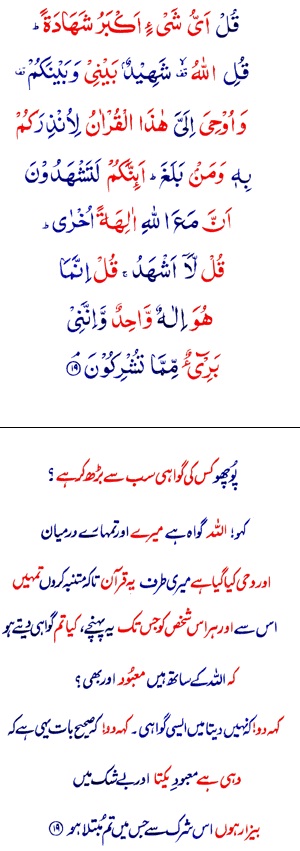 قُلْ اَیُّ شَیْءٍ اَكْبَرُ شَهَادَةً ؕ
قُلِ اللّٰهُ ۙ۫ شَهِیْدٌۢ بَیْنِیْ وَبَیْنَكُمْ ۫
وَ اُوْحِیَ اِلَیَّ هٰذَا الْقُرْاٰنُ لِاُنْذِرَكُمْ
بِهٖ وَمَنْۢ بَلَغَ ؕ اَىِٕنَّكُمْ لَتَشْهَدُوْنَ
اَنَّ مَعَ اللّٰهِ اٰلِهَةً اُخْرٰی ؕ
قُلْ لَّاۤ اَشْهَدُ ۚ قُلْ اِنَّمَا
هُوَ اِلٰهٌ وَّاحِدٌ وَّاِنَّنِیْ
بَرِیْٓءٌ مِّمَّا تُشْرِكُوْنَ ۘ ﴿۱۹﴾
پُوچھو کس کی گواہی سب سے بڑھ کر ہے ؟
کہو! اللہ گواہ ہے میرے اور تمہارے درمیان
اور وحی کیا گیا ہے میری طرف یہ قرآن تاکہ متنبہ کروں تمہیں
اس سے اور ہر اس شخص کو جس تک یہ پہنچے، کیا تم گواہی دیتے ہو
کہ اللہ کے ساتھ ہیں معبُود اور بھی ؟
کہہ دو! کہ نہیں دیتا میں ایسی گواہی۔ کہہ دو! کہ صحیح بات یہی ہے کہ
وہی ہے معبودِ یکتا اور بے شک میں
بیزار ہوں اس شرک سے جس میں تم مُبتلا ہو ﴿۱۹﴾